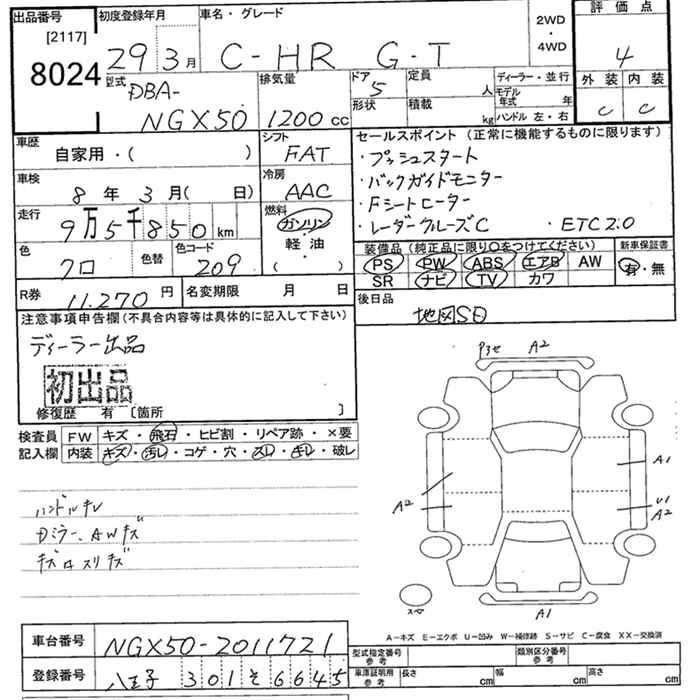 出品番号 初度登録年月 車名・グレード 2WD・4WD 評価点
[2117]
8024 29 3月 C-HR G・T 4
型式 DBA- NGX50 排気量 1200 cc ドア 5 定員 人 ディーラー・並行 外装 内装
形状 積載 kg モデル年式 年 ハンドル 左・右 C C
車歴 自家用・( ) シフト FAT セールスポイント (正常に機能するものに限ります)
・プッシュスタート
車検 8年 3月( 日) 冷房 AAC ・バックガイドモニター
・Fシートヒーター
走行 9万5千850km 燃料 ガソリン・軽油・( ) ・レーダークルーズC ・ETC2.0
色 クロ 色替 色コード 209 装備品 (純正品に限り○をつけてください) 新車保証書
PS PW ABS エアB AW 有・無
SR ナビ TV カワ
R券 11.270円 名変期限 月 日 後日品
地図SD
注意事項申告欄(不具合内容等は具体的に記入して下さい)
ディーラー出品
初出品
修復歴 有 [箇所 ]
検査員 FW キズ・飛石・ヒビ割・リペア跡・×要
記入欄 内装 キズ・汚レ・コゲ・穴・スレ・キレ・破レ
ハンドルキレ
Dミラー、AWキズ
キズ
スリキズ
A2
A1
A2
U1
A2
A1
スペ
A-キズ E-エクボ U-凹み W-補修跡 S-サビ C-腐食 XX-交換済
車台番号 NGX50-2011721 型式指定番号 参考 類別区分番号 参考
登録番号 八王子 301 そ 6645 車庫証明用 参考 長さ cm 幅 cm 高さ cm